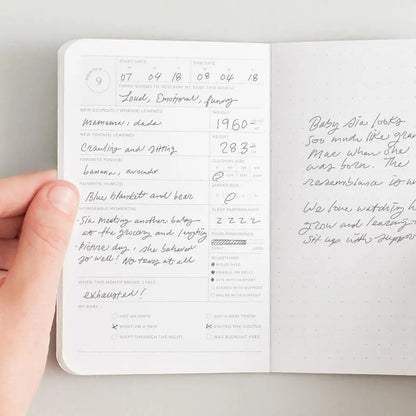 MONTH
9
START DATE
END DATE
07 04 18
08 04 18
THREE WORDS TO DESCRIBE MY BABY THIS MONTH
Loud, Emotional, funny
NEW SOUND(S) / WORD(S) LEARNED
Mamama, dada
WEIGHT
NEW TRICK(S) LEARNED
Crawling and sitting
HEIGHT
FAVORITE FOOD(S)
banana, avocado
CLOTHING SIZE
FAVORITE THING(S)
Blue blankets and bear
DIAPER SIZE
MEMORABLE MOMENT(S)
- Sia meeting another baby
at the grocery and laughing
- Picture day, she behaved
so well! No tears at all
SLEEP PREFERENCE
Z Z Z Z
FOOD PREFERENCE
MILESTONES
ROLLS OVER
SITS WITH SUPPORT
STANDS WITH SUPPORT
WALKS WITH SUPPORT
WHEN THIS MONTH ENDED I FELT
exhausted!
MY BABY
GOT AN OWIE
WENT ON A TRIP
SLEPT THROUGH THE NIGHT
GOT A NEW TOOTH
VISITED THE DOCTOR
WAS BLOWOUT FREE
Baby Sia looks
soo much like
Mae when she
was born. The
resemblance is
We love watching
grow and
sit up with